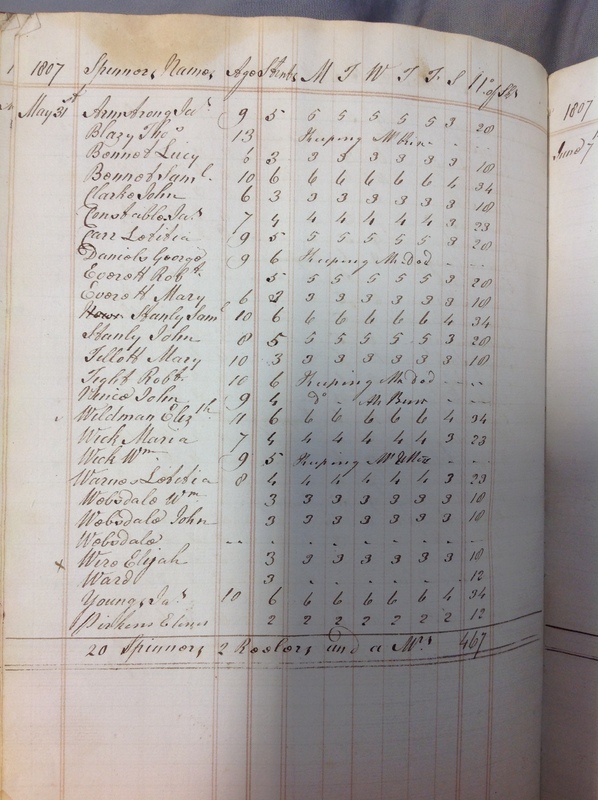 1807 Spinners Names Age Stents M T W T F S No. of Sks
May 31st Armstrong Jas. 9 5 5 5 5 5 5 3 28
Blazy Thos. 13 Keeping
Bennet Lucy 6 3 3 3 3 3 3 3 18
Bennet Saml. 10 6 6 6 6 6 6 4 34
Clarke John 6 3 3 3 3 3 3 3 18
Constable Jas. 7 4 4 4 4 4 4 3 23
Carr Letitia 9 5 5 5 5 5 5 3 28
Daniels George 9 6 Keeping - - -
Everett Robt. 5 5 5 5 5 5 3 28
Everett Mary 6 3 3 3 3 3 3 3 18
Stanly Saml 10 6 6 6 6 6 6 4 34
Stanly John 8 5 5 5 5 5 5 3 28
Tillett Mary 10 3 3 3 3 3 3 3 18
Tight Robt. 10 6 Keeping - - -
John 9 4 do -
Wildman Elizth 11 6 6 6 6 6 6 4 34
Wick Maria 7 4 4 4 4 4 4 3 23
Wick Wm 9 5 Keeping - - -
Warnes Letitia 8 4 4 4 4 4 4 3 23
Websdale Wm 3 3 3 3 3 3 3 18
Websdale John 3 3 3 3 3 3 3 18
Websdale - - - - - - - -
x Wire Elijah 3 3 3 3 3 3 3 18
Ward 3 - - - - - - 12
Youngs Jas. 10 6 6 6 6 6 6 4 34
2 2 2 2 2 2 2 12
20 Spinners 2 Reelers and a Mrs. 467
1807
June 7